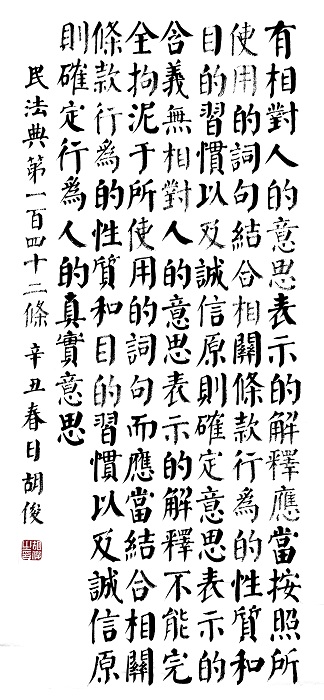 有相對人的意思表示的解釋應當按照所
使用的詞句結合相關條款行為的性質和
目的習慣以及誠信原則確定意思表示的
含義無相對人的意思表示的解釋不能完
全拘泥于所使用的詞句而應當結合相關
條款行為的性質和目的習慣以及誠信原
則確定行為人的真實意思
民法典第一百四十二條 辛丑春日胡俊